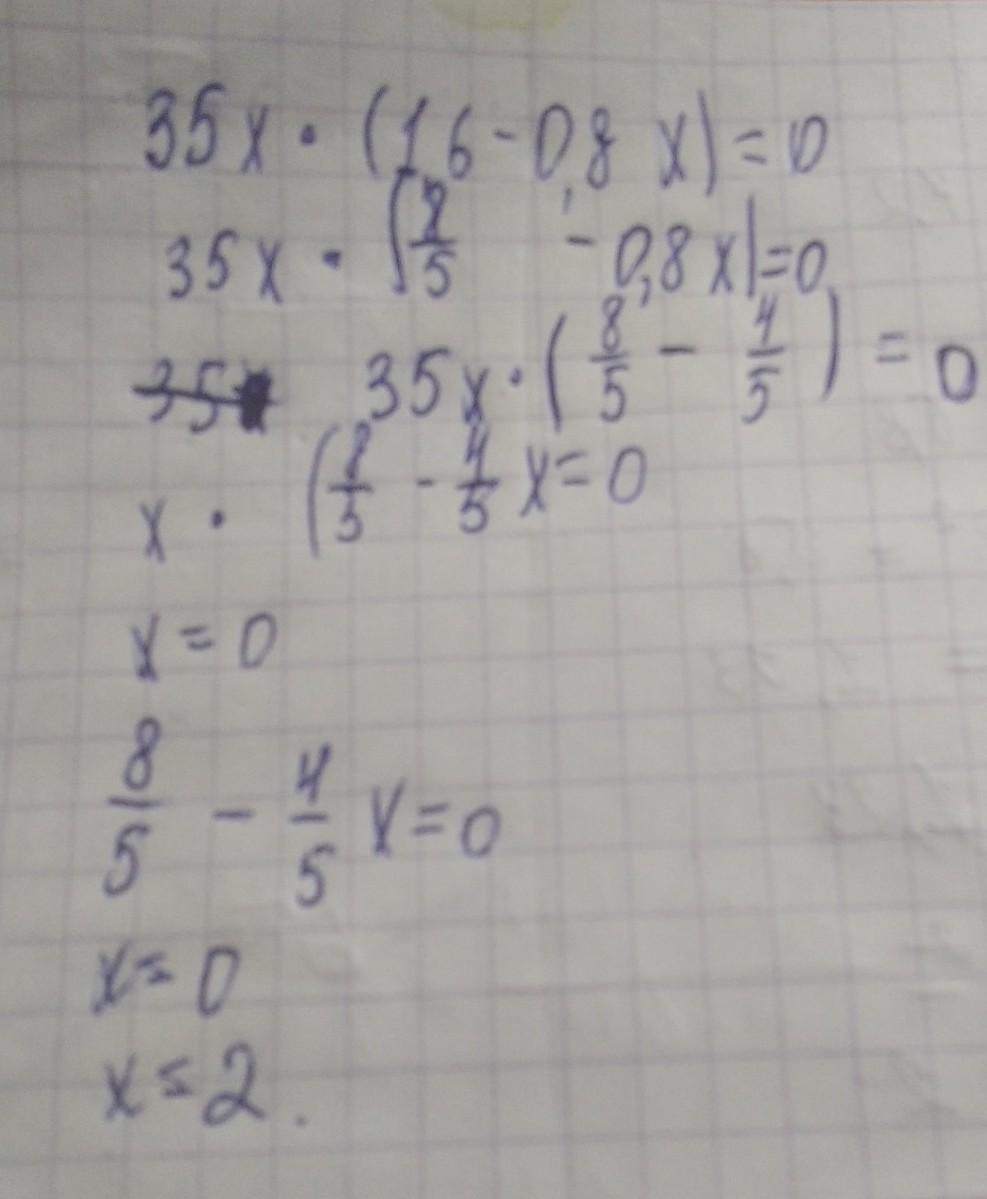 35x · (1,6 - 0,8 x) = 0
35x · (8/5 - 0,8x) = 0
35x · (8/5 - 4/5) = 0
x · (8/5 - 4/5 x = 0
x = 0
8/5 - 4/5 x = 0
x = 0
x = 2.